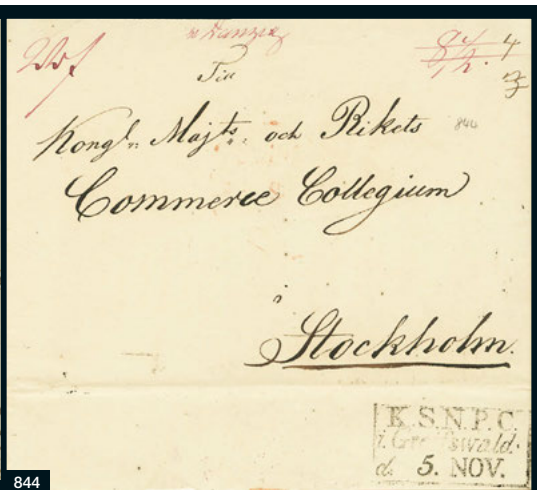 v Danzig
Till
Kongl: Majts: och Rikets
844
Commerce Collegium
Stockholm.
K. S. N. P. C.
i. Greifswald.
d. 5. NOV.
844